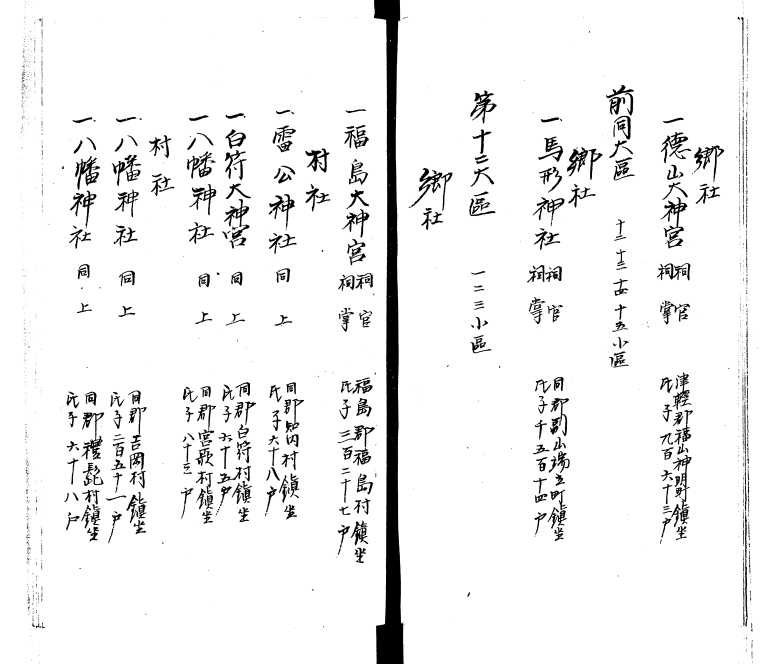 郷社
一德山大神宮 祠官 祠掌
津輕郡福山神明町鎮坐
氏子九百六十三戸
前同大區 十二十三十四十五小區
郷社
一馬形神社 祠官 祠掌
同郡
鎮坐
氏子千五百十四戸
第十二大區 一二三小區
郷社
一福島大神宮 祠官 祠掌
福島郡福島村鎮坐
氏子三百二十七戸
村社
一雷公神社 同上
同郡知内村鎮坐
氏子六十八戸
一白符大神宮 同上
同郡白符村鎮坐
氏子六十五戸
一八幡神社 同上
同郡宮歌村鎮坐
氏子八十三戸
村社
一八幡神社 同上
同郡吉岡村鎮坐
氏子二百五十一戸
一八幡神社 同上
同郡禮髭村鎮坐
氏子六十八戸